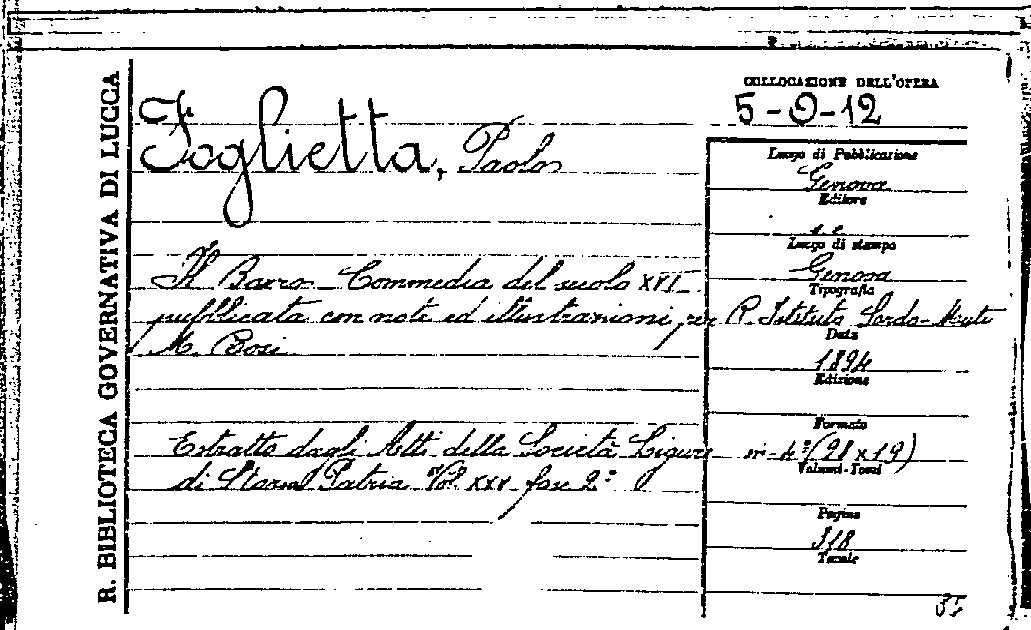 R. BIBLIOTECA GOVERNATIVA DI LUCCA
Foglietta, Paolo
Il Barro - Commedia del secolo XVI -
pubblicata con note ed illustrazioni per
M. Rosi
Estratto dagli Atti della Società Ligure
di Storia Patria Vol. XXV fasc. 2º
COLLOCAZIONE DELL'OPERA
5-0-12
Luogo di Pubblicazione
Genova
Editore
s. e.
Luogo di stampa
Genova
Tipografia
R. Istituto Sordo-Muti
Data
1894
Edizione
Formato
in-4º (28x19)
Volumi-Tomi
Pagine
318
Tavole